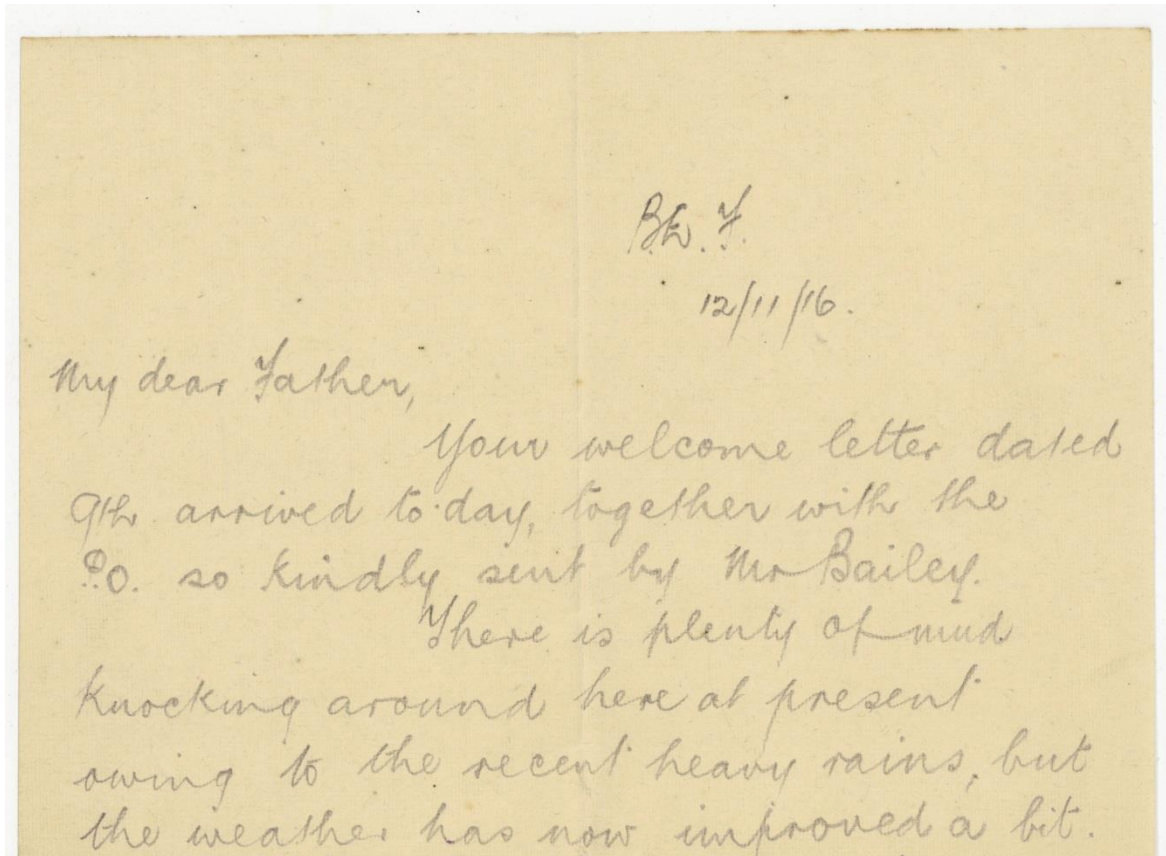 B.E.F.
12/11/16.
My dear Father,
Your welcome letter dated
9th arrived to-day, together with the
P.O. so kindly sent by Mr Bailey.
There is plenty of mud
knocking around here at present
owing to the recent heavy rains, but
the weather has now improved a bit.